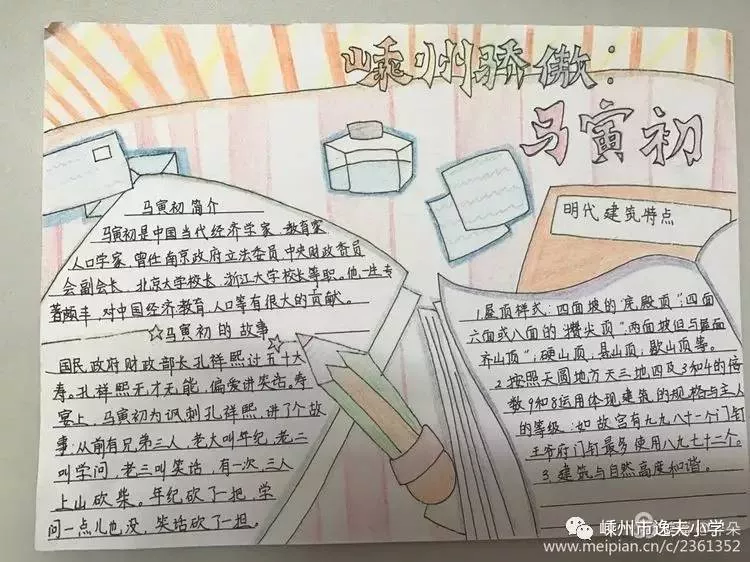 嵊州骄傲：
马寅初
马寅初简介
马寅初是中国当代经济学家、教育家、
人口学家，曾任南京政府立法委员，中央财政委员
会副会长、北京大学校长、浙江大学校长等职。他一生专
著颇丰，对中国经济教育、人口等有很大的贡献。
☆马寅初的故事☆
国民政府财政部长孔祥熙过五十大
寿。孔祥熙无才无能，偏爱讲笑话。寿
宴上，马寅初为讽刺孔祥熙，讲了个故
事：从前有兄弟三人，老大叫年纪，老二
叫学问，老三叫笑话，有一次，三人
上山砍柴。年纪砍了一把，学
问一点儿也没，笑话砍了一担。
明代建筑特点
1.屋顶样式：四面坡的"庑殿顶"，四面
六面或八面的"攒尖顶"，两面坡但与屋面
齐山顶"，硬山顶，悬山顶，歇山顶等。
2.按照天圆地方天三地四及3和4的倍
数9和8运用体现建筑的规格与主人
的等级：如故宫有九九八十一个门钉
王爷府门钉最多使用八九七十二个。
3.建筑与自然高度和谐。
嵊州市逸夫小学
www.meipian.cn/c/2361352